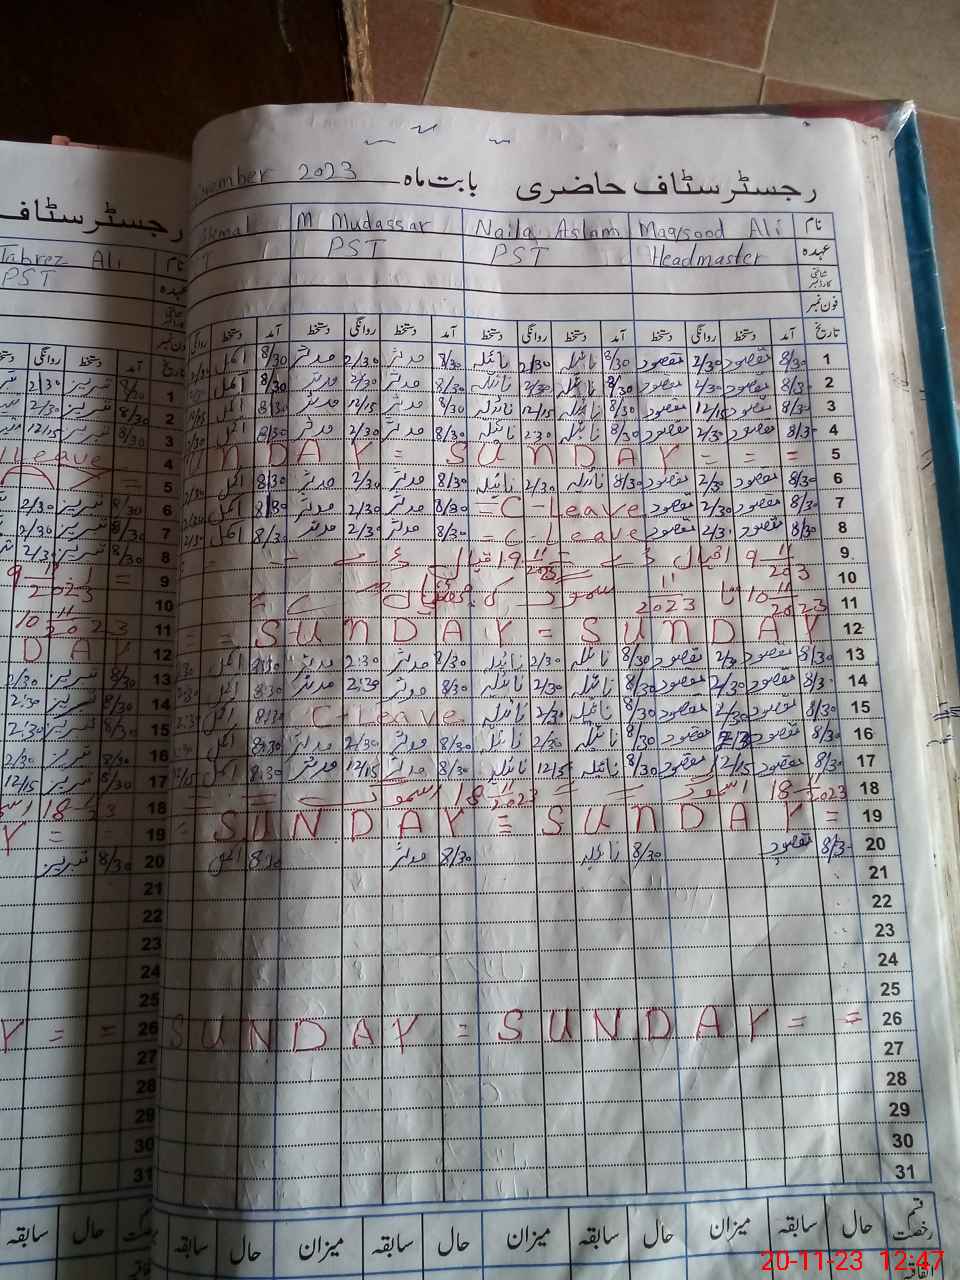 رجسٹر سٹاف حاضری بابت ماہ November 2023
نام Maqsood Ali Naila Aslam M Mudassar
عہدہ Headmaster PST PST
فون نمبر
تاریخ آمد دستخط روانگی دستخط آمد دستخط روانگی دستخط آمد دستخط روانگی دستخط آمد
1 8/30 مقصود 2/30 مقصود 8/30 نائلہ 2/30 نائلہ 8/30 مدثر 2/30 مدثر 8/30 اکمل
2 8/30 مقصود 2/30 مقصود 8/30 نائلہ 2/30 نائلہ 8/30 مدثر 2/30 مدثر 8/30 اکمل
3 8/30 مقصود 12/15 مقصود 8/30 نائلہ 12/15 نائلہ 8/30 مدثر 12/15 مدثر 8/30 اکمل
4 8/30 مقصود 2/30 مقصود 8/30 نائلہ 2/30 نائلہ 8/30 مدثر 2/30 مدثر 8/30 اکمل
5 NDAY = SUNDAY = = =
6 8/30 مقصود 2/30 مقصود 8/30 نائلہ 2/30 نائلہ 8/30 مدثر 2/30 مدثر 8/30 اکمل
7 8/30 مقصود 2/30 مقصود = C-Leave 8/30 مدثر 2/30 مدثر 8/30 اکمل
8 8/30 مقصود 2/30 مقصود = C-Leave 8/30 مدثر 2/30 مدثر 8/30 اکمل
9 9-11-2023 اقبال ڈے
10
11 10-11-2023 تا 11-2023 سموگ کی
12 = = SUNDAY = SUNDAY
13 8/30 مقصود 2/30 مقصود 8/30 نائلہ 2/30 نائلہ 8/30 مدثر 2:30 مدثر 8:30 اکمل
14 8/30 مقصود 2/30 مقصود 8/30 نائلہ 2/30 نائلہ 8/30 مدثر 2:30 مدثر 8:30 اکمل
15 8/30 مقصود 2/30 مقصود 8/30 نائلہ 2/30 نائلہ C-Leave 8:30 اکمل
16 8/30 مقصود 2/30 مقصود 8/30 نائلہ 2/30 نائلہ 8/30 مدثر 2/30 مدثر 8:30 اکمل
17 8/30 مقصود 12/15 مقصود 8/30 نائلہ 12/15 نائلہ 8/30 مدثر 12/15 مدثر 8:30 اکمل
18 18-11-2023 اسموگ 18-11-2023 اسموگ
19 = SUNDAY = SUNDAY =
20 8/30 مقصود 8/30 نائلہ 8/30 مدثر 8:30 اکمل
21
22
23
24
25
26 SUNDAY = SUNDAY = =
27
28
29
30
31
قسم رخصت حال سابقہ میزان حال سابقہ میزان حال سابقہ میزان حال سابقہ
رجسٹر سٹاف
نام Tabrez Ali
عہدہ PST
تاریخ آمد دستخط روانگی دستخط
1 8/30 تبریز 2/30
2 8/30 تبریز 2/30
3 8/30 تبریز 12/15
4 Leave
5 =
6 8/30 تبریز 2/30
7 8/30 تبریز 2/30
8 8/30 تبریز 2/30
9 = 9-11-2023
10
11 10-11-2023
12 DAY
13 8/30 تبریز 2/30
14 8/30 تبریز 2:30
15 8/30 تبریز 2:30
16 8/30 تبریز 2/30
17 8/30 تبریز 12/15
18
19 Y = =
20 8/30 تبریز
21
22
23
24
25
26 Y = =
27
28
29
30
31
حال سابقہ
20-11-23 12:47